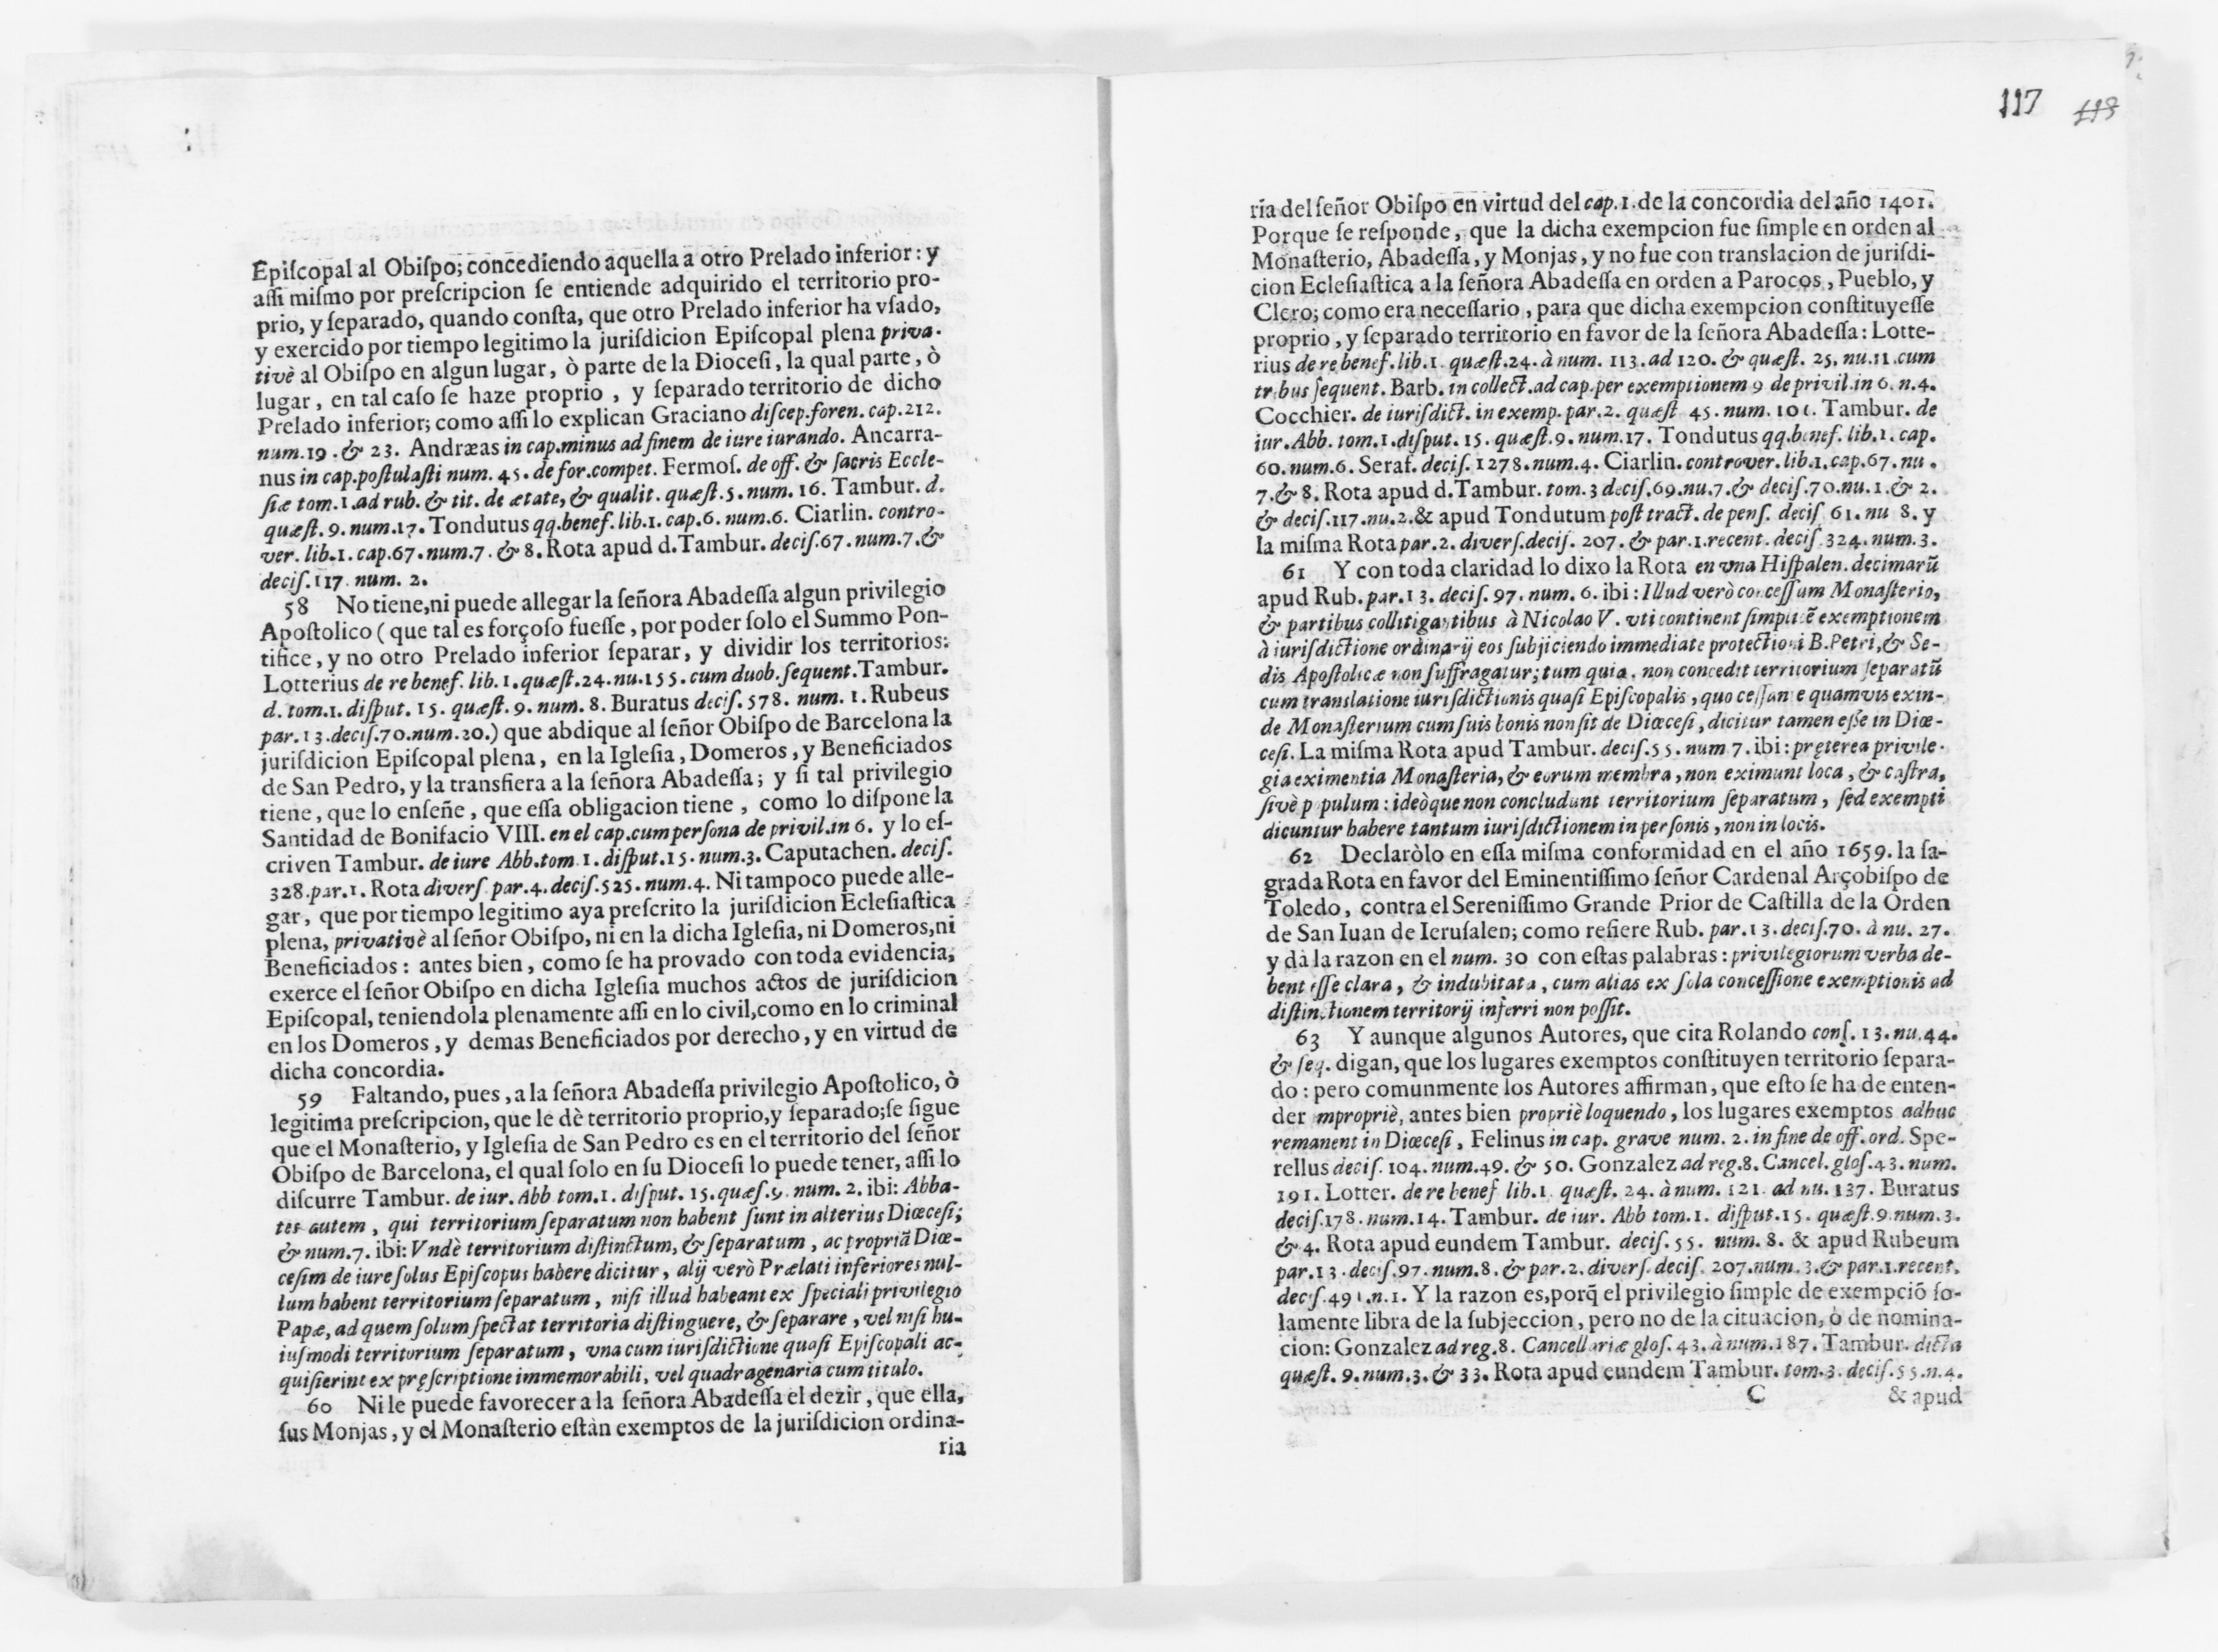 Epiſcopal al Obiſpo; concediendo aquella a otro Prelado inferior: y
aſſi miſmo por preſcripcion ſe entiende adquirido el territorio pro-
prio, y ſeparado, quando conſta, que otro Prelado inferior ha vſado,
y exercido por tiempo legitimo la juriſdicion Epiſcopal plena priva-
tivè al Obiſpo en algun lugar, ò parte de la Dioceſi, la qual parte, ò
lugar, en tal caſo ſe haze proprio, y ſeparado territorio de dicho
Prelado inferior; como aſſi lo explican Graciano diſcep.foren. cap.212.
num.19. & 23. Andræas in cap.minus ad finem de iure iurando. Ancarra-
nus in cap.poſtulaſti num. 45. de for.compet. Fermoſ. de off. & ſacris Eccle-
ſiæ tom.1.ad rub. & tit. de ætate, & qualit. quæſt.5.num. 16. Tambur. d.
quæſt. 9. num.17. Tondutus qq.benef. lib.1. cap.6. num.6. Ciarlin. contro-
ver. lib.1. cap.67.num.7. & 8. Rota apud d.Tambur. deciſ.67.num.7.&
deciſ.117. num. 2.
58 No tiene,ni puede allegar la ſeñora Abadeſſa algun privilegio
Apoſtolico (que tal es forçoſo fueſſe, por poder ſolo el Summo Pon-
tifice, y no otro Prelado inferior ſeparar, y dividir los territorios:
Lotterius de re benef. lib. 1.quæſt.24.nu.155.cum duob.ſequent.Tambur.
d. tom.1. diſput. 15. quæſt. 9. num. 8. Buratus deciſ.578. num. 1. Rubeus
par.13.deciſ.70.num.20.) que abdique al ſeñor Obiſpo de Barcelona la
juriſdicion Epiſcopal plena, en la Igleſia, Domeros, y Beneficiados
de San Pedro, y la transfiera a la ſeñora Abadeſſa; y ſi tal privilegio
tiene, que lo enſeñe, que eſſa obligacion tiene, como lo diſpone la
Santidad de Bonifacio VIII. en el cap.cum perſona de privil.in 6. y lo eſ-
criven Tambur. de iure Abb.tom 1. diſput.15.num.3. Caputachen. deciſ.
328.par.1. Rota diverſ. par.4. deciſ.525.num.4. Ni tampoco puede alle-
gar, que por tiempo legitimo aya preſcrito la juriſdicion Ecleſiaſtica
plena, privativè al ſeñor Obiſpo, ni en la dicha Igleſia, ni Domeros,ni
Beneficiados: antes bien, como ſe ha provado con toda evidencia,
exerce el ſeñor Obiſpo en dicha Igleſia muchos actos de juriſdicion
Epiſcopal, teniendola plenamente aſſi en lo civil,como en lo criminal
en los Domeros, y demas Beneficiados por derecho, y en virtud de
dicha concordia.
59 Faltando, pues, a la ſeñora Abadeſſa privilegio Apoſtolico, ò
legitima preſcripcion, que le dè territorio proprio,y ſeparado;ſe ſigue
que el Monaſterio, y Igleſia de San Pedro es en el territorio del ſeñor
Obiſpo de Barcelona, el qual ſolo en ſu Dioceſi lo puede tener, aſſi lo
diſcurre Tambur. de iur. Abb tom.1. diſput. 15.quæſ.9. num. 2. ibi: Abba-
tes autem, qui territorium ſeparatum non habent ſunt in alterius Diœceſi;
& num.7. ibi: Vndè territorium diſtinctum, & ſeparatum, ac propriã Diœ-
ceſim de iure ſolus Epiſcopus habere dicitur, alij verò Prælati inferiores nul-
lum habent territorium ſeparatum, niſi illud habeant ex ſpeciali privilegio
Papæ, ad quem ſolum ſpectat territoria diſtinguere, & ſeparare, vel niſi hu-
iuſmodi territorium ſeparatum, vna cum iuriſdictione quaſi Epiſcopali ac-
quiſierint ex pręſcriptione immemorabili, vel quadragenaria cum titulo.
60 Ni le puede favorecer a la ſeñora Abadeſſa el dezir, que ella,
ſus Monjas, y el Monaſterio eſtàn exemptos de la juriſdicion ordina-
ria
117 118
ria del ſeñor Obiſpo en virtud del cap.1.de la concordia del año 1401.
Porque ſe reſponde, que la dicha exempcion fue ſimple en orden al
Monaſterio, Abadeſſa, y Monjas, y no fue con translacion de juriſdi-
cion Ecleſiaſtica a la ſeñora Abadeſſa en orden a Parocos, Pueblo, y
Clero; como era neceſſario, para que dicha exempcion conſtituyeſſe
proprio, y ſeparado territorio en favor de la ſeñora Abadeſſa: Lotte-
rius de re benef. lib.1. quæſt.24. à num. 113. ad 120. & quæſt. 25. nu.11.cum
tribus ſequent. Barb. in collect.ad cap.per exemptionem 9 de privil.in 6. n.4.
Cocchier. de iuriſdict. in exemp. par.2. quæſt 45. num. 101. Tambur. de
iur. Abb. tom.1.diſput. 15. quæſt.9. num.17. Tondutus qq.benef. lib.1. cap.
60.num.6. Seraf. deciſ. 1278.num.4. Ciarlin. controver. lib.1.cap.67. nu.
7.& 8. Rota apud d.Tambur. tom. 3 deciſ.69.nu.7.& deciſ.70.nu.1.& 2.
& deciſ.117.nu.2.& apud Tondutum poſt tract. de penſ. deciſ 61. nu 8. y
la miſma Rota par. 2. diverſ.deciſ. 207. & par.1.recent. deciſ 324. num.3.
61 Y con toda claridad lo dixo la Rota en vna Hiſpalen. decimarũ
apud Rub. par.13. deciſ. 97. num. 6. ibi: Illud verò conceſſum Monaſterio,
& partibus collitigantibus à Nicolao V. vti continent ſimplicẽ exemptionem
à iuriſdictione ordinarij eos ſubjiciendo immediate protectioni B.Petri, & Se-
dis Apoſtolicæ non ſuffragatur; tum quia. non concedit territorium ſeparatũ
cum translatione iuriſdictionis quaſi Epiſcopalis, quo ceſſante quamvis exin-
de Monaſterium cum ſuis bonis non ſit de Diœceſi, dicitur tamen eſſe in Diœ-
ceſi. La miſma Rota apud Tambur. deciſ.55. num 7. ibi: pręterea privile-
gia eximentia Monaſteria, & eorum membra, non eximunt loca, & caſtra,
ſivè p pulum: ideòque non concludunt territorium ſeparatum, ſed exempti
dicuntur habere tantum iuriſdictionem in perſonis, non in locis.
62 Declaròlo en eſſa miſma conformidad en el año 1659. la ſa-
grada Rota en favor del Eminentiſſimo ſeñor Cardenal Arçobiſpo de
Toledo, contra el Sereniſſimo Grande Prior de Caſtilla de la Orden
de San Iuan de Ieruſalen; como refiere Rub. par.13. deciſ.70. à nu. 27.
y dà la razon en el num. 30 con eſtas palabras: privilegiorum verba de-
bent eſſe clara, & indubitata, cum alias ex ſola conceſſione exemptionis ad
diſtinctionem territorij inferri non poſſit.
63 Y aunque algunos Autores, que cita Rolando conſ. 13. nu.44.
& ſeq. digan, que los lugares exemptos conſtituyen territorio ſepara-
do: pero comunmente los Autores affirman, que eſto ſe ha de enten-
der mpropriè, antes bien propriè loquendo, los lugares exemptos adhuc
remanent in Diœceſi, Felinus in cap. grave num. 2. in fine de off. ord. Spe-
rellus deciſ. 104. num.49. & 50. Gonzalez ad reg.8. Cancel. gloſ.43. num.
191. Lotter. de re benef lib.1. quæſt. 24. à num. 121. ad nu. 137. Buratus
deciſ.178. num.14. Tambur. de iur. Abb tom.1. diſput.15. quæſt.9.num.3.
& 4. Rota apud eundem Tambur. deciſ. 55. num. 8. & apud Rubeum
par.13. deciſ.97. num.8. & par.2. diverſ. deciſ. 207.num.3.& par.1.recent.
deciſ.491.n.1. Y la razon es,porq̃ el privilegio ſimple de exempciõ ſo-
lamente libra de la ſubjeccion, pero no de la cituacion, ò de nomina-
cion: Gonzalez ad reg.8. Cancellariæ gloſ. 43. à num.187. Tambur. dicta
quæſt. 9. num.3. & 33. Rota apud eundem Tambur. tom. 3. deciſ. 55.n.4.
C & apud